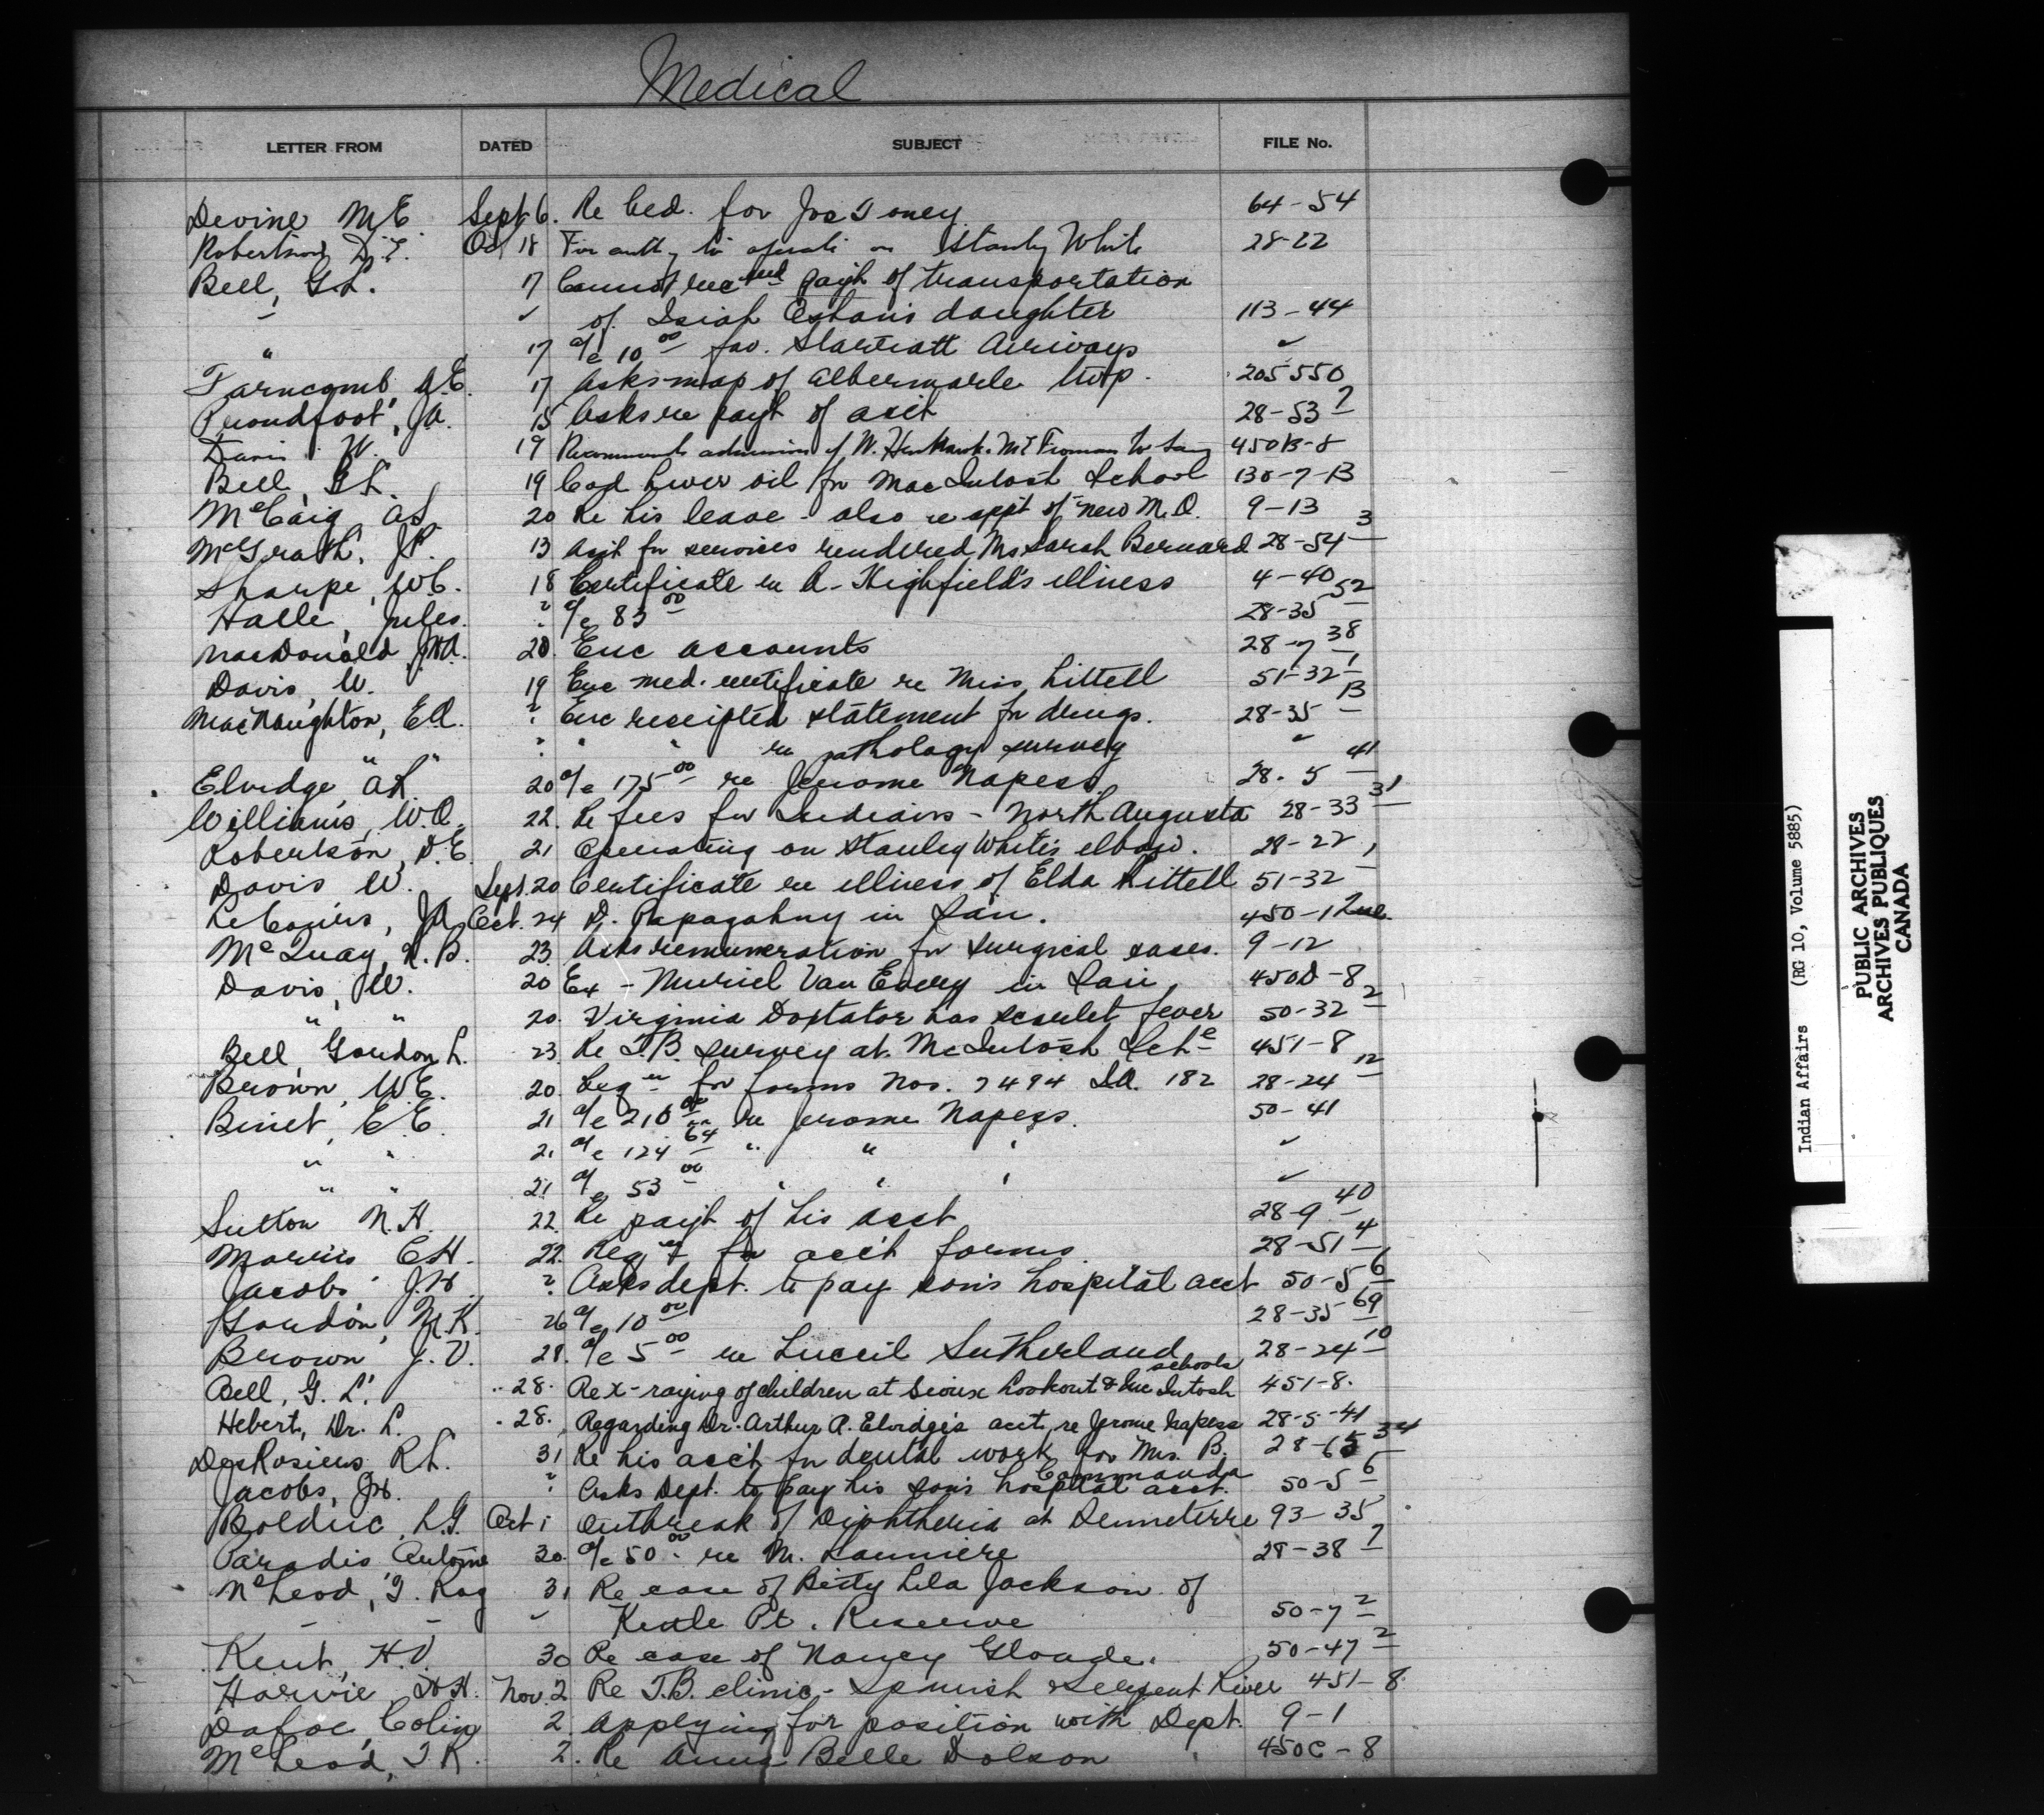 Medical
LETTER FROM DATED SUBJECT FILE No.
Devine M.E. Sept 6. Re bed. for Jos Toney 64-54
Robertson, D.E. Oct 18 For auth'y to operate on Stanley White 28-22
Bell, G.L. 17 Cannot rec'm'd payt of transportation
" ✓ of Isiah daughter 113-44
" 17 a/c 10 00 fav. Starratt Airways ✓
Farncomb, A.E. 17 Asks map of Albermarle twp. 205550
Proudfoot, J.A. 15 Asks re payt of acct 28-53 7
Davis W. 19 Recommends admission of W. to San 450B-8
Bell, G.L. 19 Cod liver oil for MacIntosh School 130-7-13
McCaig A.S. 20 Re his leave - also re appt of new M.O. 9-13
McGrath, J.P. 13 Acct for services rendered Mrs Sarah Bernard 28-54 3
Sharpe, W.C. 18 Certificate re A. Highfield's illness 4-40
Halle, Jules. " a/c 83 00 28-35 52
MacDonald J.H.A. 20. Enc accounts 28-7 38
Davis, W. 19 Enc med. certificate re Miss Littell 51-32 1
MacNaughton, E.A. " Enc receipted statement for drugs. 28-35 13
" " " " " re pathology survey ✓
Elvidge, A.R. 20 a/c 175 00 re Jerome Napess. 28-5 41
Williams, W.A. 22. Re fees for Indians - North Augusta 28-33 31
Robertson, D.E. 21 Operating on Stanley White's elbow. 28-22
Davis W. Sept. 20 Certificate re illness of Elda Littell 51-32 1
J.A. Oct. 24 D. Papagahny in San. 450-1 Que.
McQuay, R.B. 23. Asks remuneration for surgical cases. 9-12
Davis, W. 20 Ex - Muriel Van Every in San. 450D-8
" " 20. Virginia Doxtator has scarlet fever 50-32 2
Bell Gordon L. 23 Re T.B. survey at McIntosh Sch. 451-8
Brown, W.E. 20. Req'n for forms Nos. 7494 I.A. 182 28-24 12
Binet, E.E. 21 a/c 210 00 re Jerome Napess. 50-41
" " 21 a/c 124 64 " " " ✓
" " 21 a/c 53 00 " " " ✓
Sutton N.H. 22. Re payt of his acct 28-9 40
Morris C.H. 22. Req'n for acct forms 28-51 4
Jacobs J.H. " Asks dept. to pay son's hospital acct 50-5 6
Gordon, M.K. 26 a/c 10 00 28-35 69
Brown J.V. 28. a/c 5 00 re Luceil Sutherland 28-24 10
Bell, G.L. 28. Re x-raying of children at Sioux Lookout & McIntosh schools 451-8.
Hebert, Dr. L. 28. Regarding Dr. Arthur R. Elvidge's acct. re Jerome Napess 28-5-41
DesRosiers R.L. 31 Re his acct for dental work for Mrs. B. Commanda 28-65 34
Jacobs, J.H. " Asks Dept. to pay his son's hospital acct. 50-5 6
Bolduc, L.G. Oct 1 Outbreak of Diphtheria at Senneterre 93-35
Paradis Antoine 30. a/c 50 00 re M. 28-38 7
McLeod, T. Roy 31 Re case of Betty Lela Jackson of
" " ✓ Kettle Pt. Reserve 50-7 2
Kent, H.V. 30 Re case of Nancy Gloade. 50-47 2
Harvie, Nov. 2 Re T.B. clinic - Spanish & Serpent River 451-8
Dafoe, Colin 2. Applying for position with Dept. 9-1
McLeod, T.R. 2. Re Anna Belle Dolson 450C-8
Indian Affairs (RG 10, Volume 5885)
PUBLIC ARCHIVES
ARCHIVES PUBLIQUES
CANADA